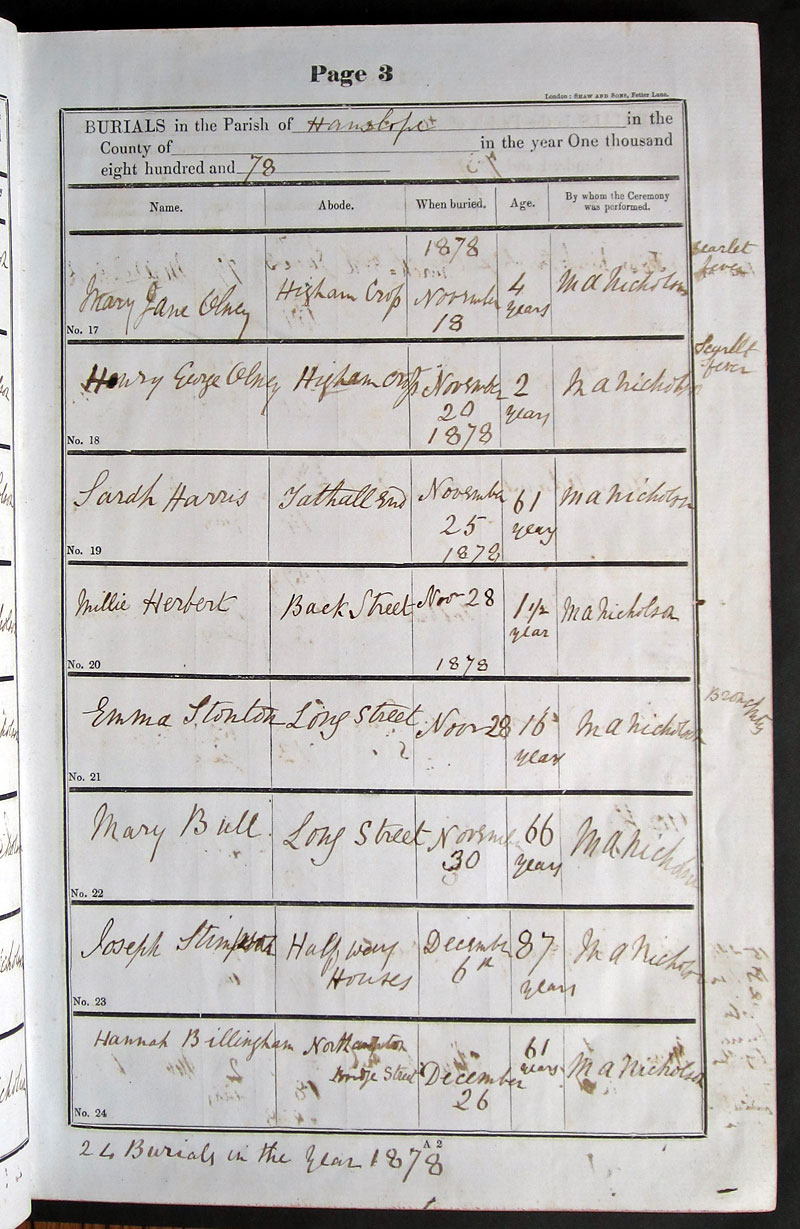 Page 3
London: SHAW AND SONS, Fetter Lane.
BURIALS in the Parish of Hanslope in the
County of in the year One thousand
eight hundred and 78
Name. Abode. When buried. Age. By whom the Ceremony was performed.
1878
Mary Jane Olney Higham Crop November 18 4 years M A Nicholson
scarlet
fever
No. 17
Henry George Olney Higham Crop November 20 1878 2 years M A Nicholson
Scarlet
fever
No. 18
Sarah Harris Tathall End November 25 1878 61 years M A Nicholson
No. 19
Millie Herbert Back Street Nov 28 1878 1 1/2 year M A Nicholson
No. 20
Emma Stonton Long Street Novr 28 16 years M A Nicholson
Bronchitis
No. 21
Mary Bull Long Street November 30 66 years M A Nicholson
No. 22
Joseph Stimpson Half way Houses December 6th 87 years M A Nicholson
No. 23
Hannah Billingham Northampton Bridge Street December 26 61 years M A Nicholson
No. 24
A 2
24 Burials in the Year 1878